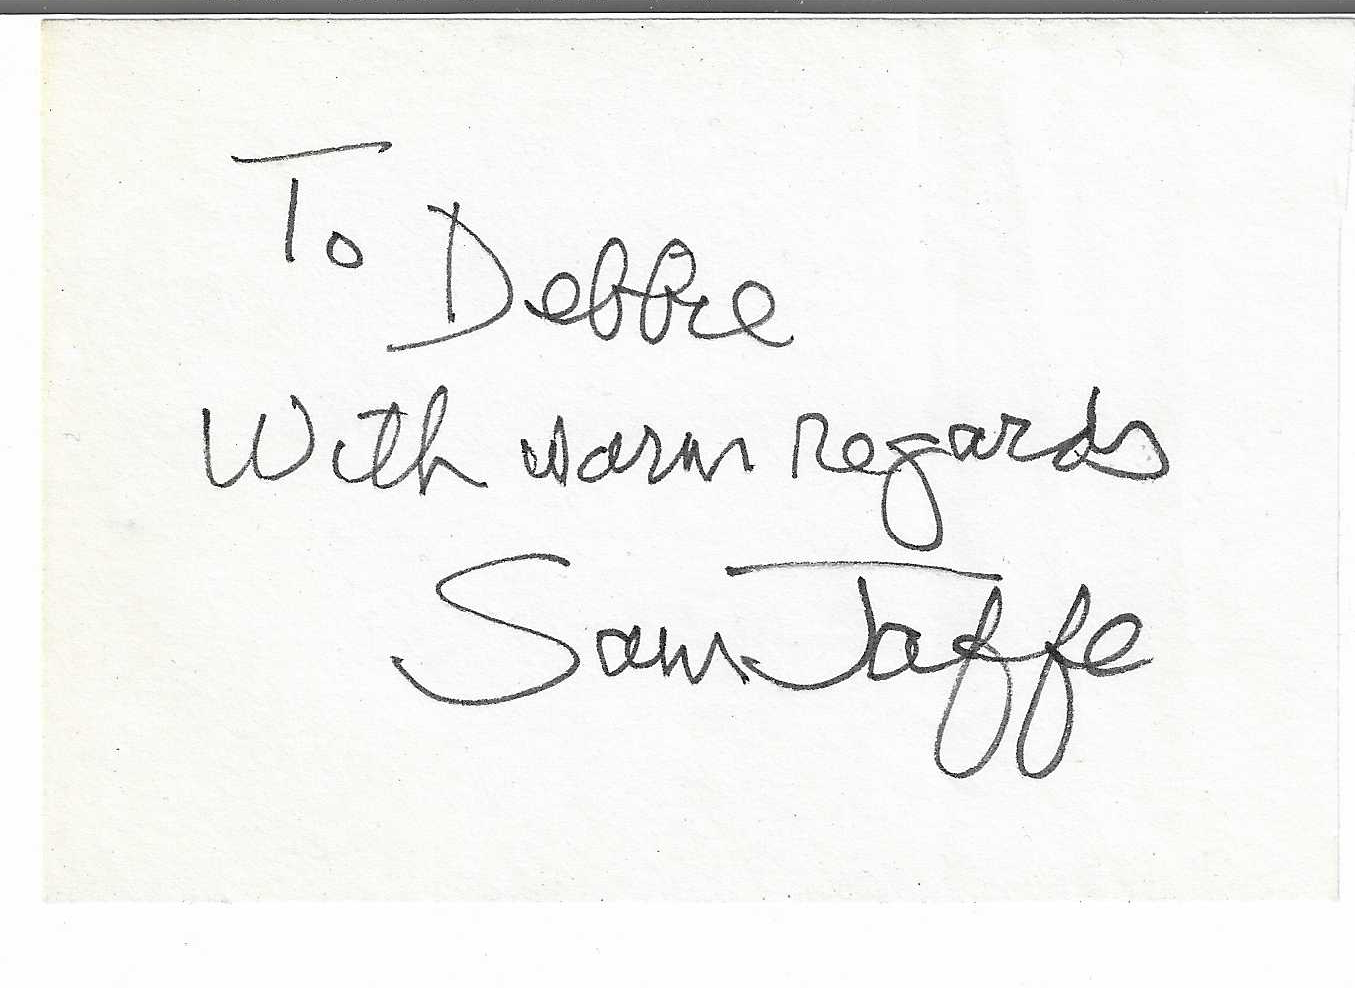 To Debbie
With warm regards
Sam Jaffe